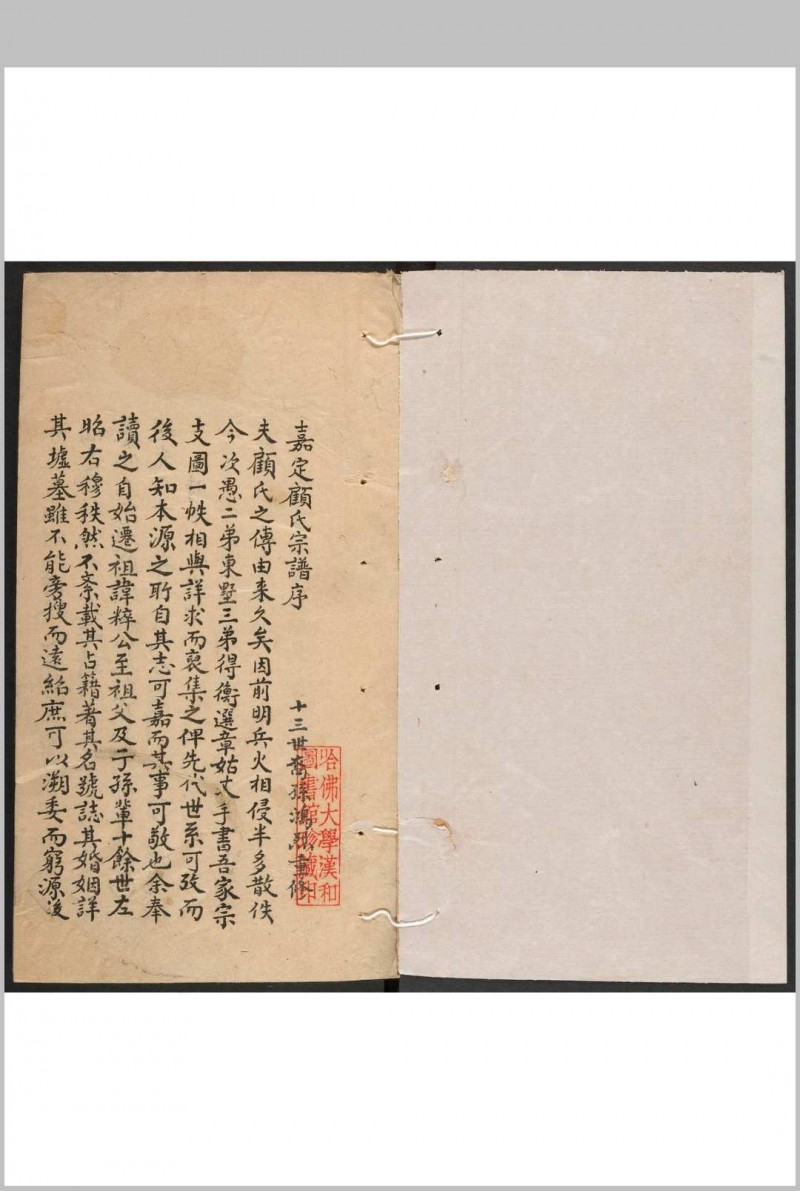 嘉定顧氏宗譜序
十三世裔孫鴻重修
夫顧氏之傳由来久矣因前明兵火相侵半多散佚
今次愚二弟東墅三弟得衡選章姑丈手書吾家宗
支圖一帙相與詳求而裒集之俾先代世系可攷而
後人知本源之所自其志可嘉而其事可敬也余奉
讀之自始遷祖諱粹公至祖父及于孫輩十餘世左
昭右穆秩然不紊載其占籍著其名號誌其婚姻詳
其墟墓雖不能旁搜而遠紹庶可以溯委而窮源後
哈佛大學漢和
圖書館珍藏印